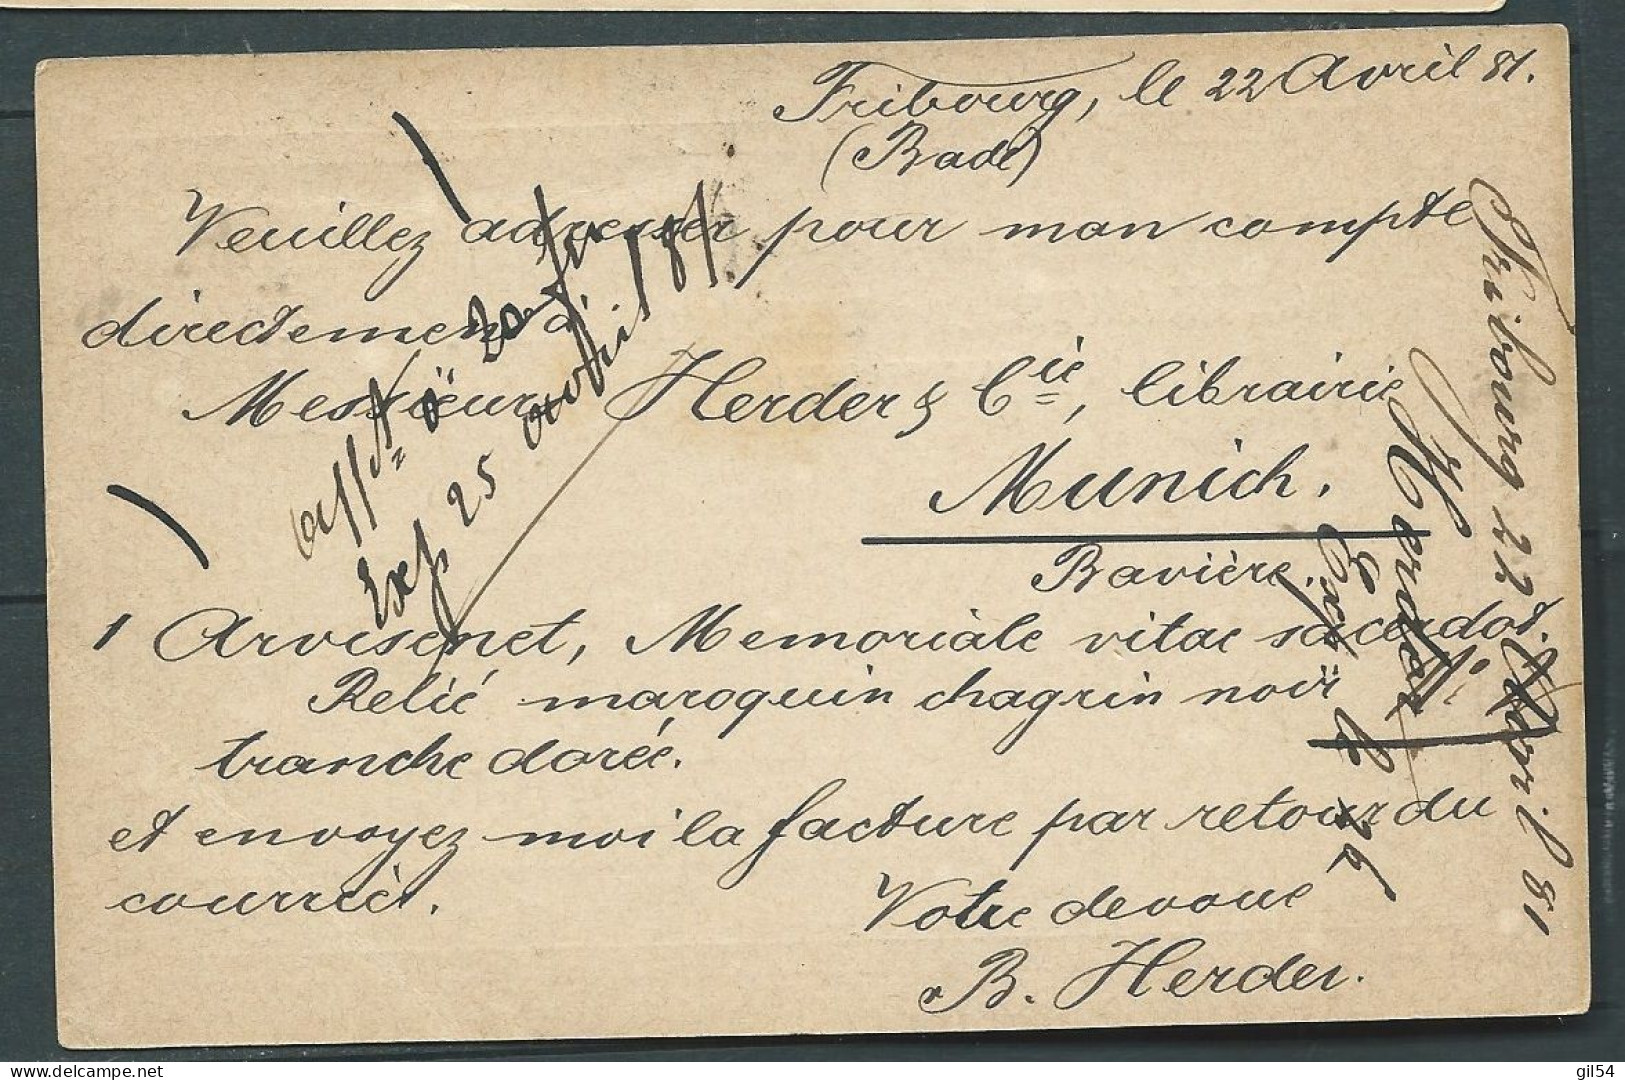 Fribourg, le 22 Avril 81.
(Bade)
Veuillez adresser pour mon compte
directement à
Messieurs Herder & Cie, librairie
Munich.
Bavière.
1 Arvisenet, Memoriale vitae sacerdot.
Relié maroquin chagrin noir
tranche dorée.
et envoyez moi la facture par retour du
courrier.
Votre devoué
B. Herder.
20
Exp 25 avril 81
Fribourg 22 Avril 81
Herder
Exp le 25
gil54